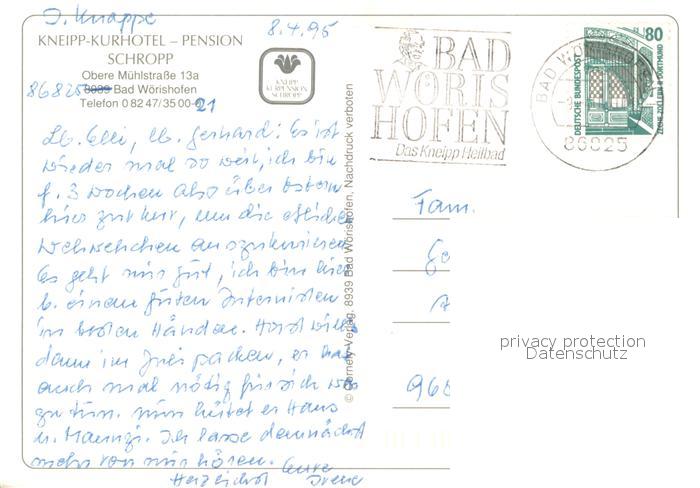 I. Knappe
8.4.95
KNEIPP-KURHOTEL – PENSION
SCHROPP
Obere Mühlstraße 13a
86825 8939 Bad Wörishofen
Telefon 0 82 47/35 00-0 21
KNEIPP
KURPENSION
SCHROPP
BAD
WÖRIS
HOFEN
Das Kneipp Heilbad
BAD WÖRISHOFEN
86825
80
DEUTSCHE BUNDESPOST
ZECHE ZOLLERN II · DORTMUND
Lb. Elli, lb. Gerhard! Es ist
wieder mal so weit, ich bin
f. 3 Wochen also über Ostern
hier zur Kur, um die etlichen
Wehwehchen auszukurieren.
Es geht mir gut, ich bin hier
b. einem guten Internisten
in besten Händen. Horst will
dann im Juni packen, er hat
auch mal nötig für sich was
zu tun. Nun hütet er Haus
u. Maunzi. Ich lasse demnächst
mehr von mir hören. Eure
Herzlichst Irene
© Cornely-Verlag, 8939 Bad Wörishofen, Nachdruck verboten
Fam.
privacy protection
Datenschutz